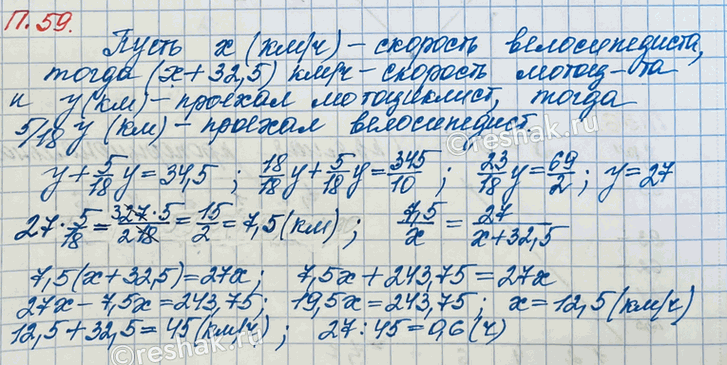 П.59.
Пусть x (км/ч) – скорость велосипедиста,
тогда (x+32,5) км/ч – скорость мотоц-та
и y (км) – проехал мотоциклист, тогда
5/18 y (км) – проехал велосипедист.
y + 5/18 y = 34,5 ; 18/18 y + 5/18 y = 345/10 ; 23/18 y = 69/2 ; y = 27
27 · 5/18 = 327·5/218 = 15/2 = 7,5 (км) ; 7,5/x = 27/(x+32,5)
7,5(x+32,5) = 27x ; 7,5x + 243,75 = 27x
27x – 7,5x = 243,75 ; 19,5x = 243,75 ; x = 12,5 (км/ч)
12,5 + 32,5 = 45 (км/ч) ; 27 : 45 = 0,6 (ч)
©reshak.ru